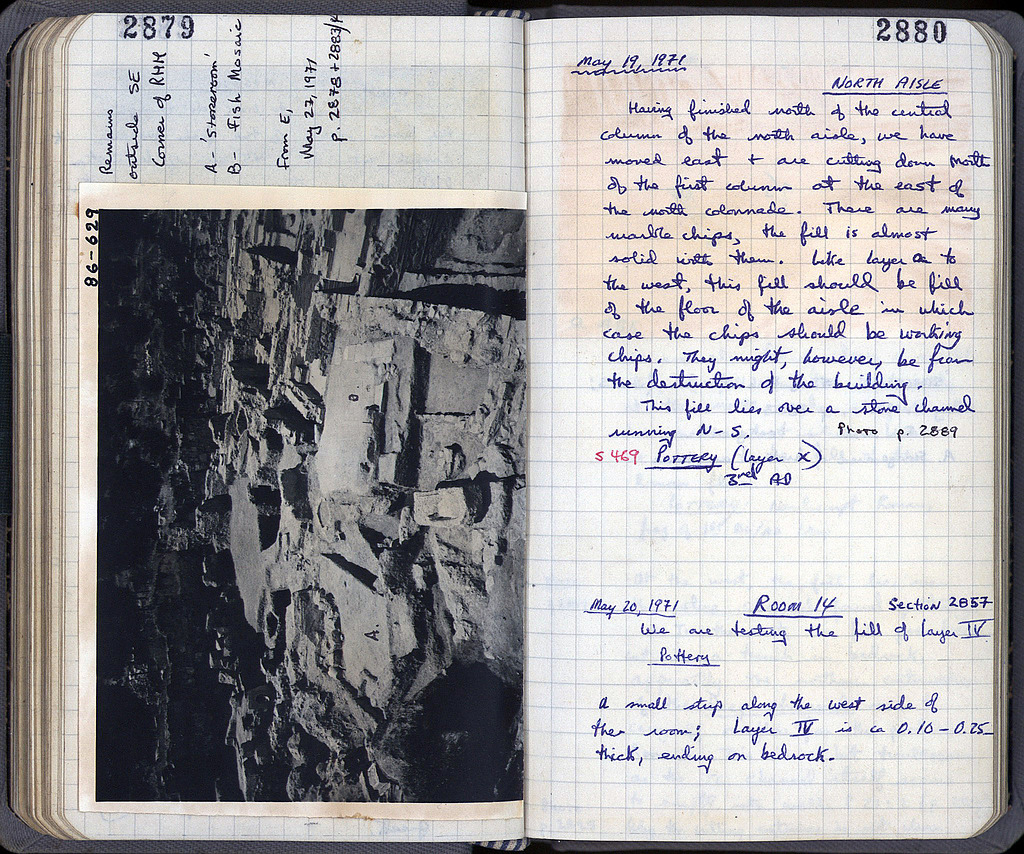 2879
Remains
outside SE
Corner of RHM
A - 'Storeroom'
B - Fish Mosaic
From E,
May 27, 1971
p. 2878 + 2883/4
86-629
B
A.
2880
May 19, 1971
NORTH AISLE
Having finished north of the central
column of the north aisle, we have
moved east + are cutting down north
of the first column at the east of
the north colonnade. There are many
marble chips, the fill is almost
solid with them. Like layer to
the west, this fill should be fill
of the floor of the aisle in which
case the chips should be working
chips. They might, however, be from
the destruction of the building.
This fill lies over a stone channel
running N-S. Photo p. 2889
S 469 POTTERY (layer X)
3rd AD
May 20, 1971 ROOM 14 Section 2857
We are testing the fill of layer IV
Pottery
A small strip along the west side of
the room; Layer IV is ca 0.10 - 0.25
thick, ending on bedrock.